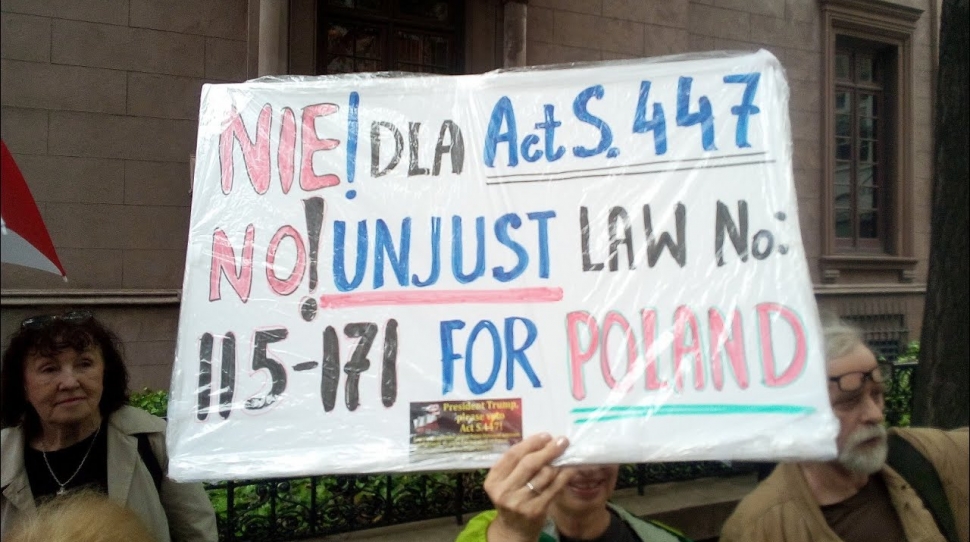 NIE! DLA Act S. 447
NO! UNJUST LAW No:
115-171 FOR POLAND
President Trump,
please veto
Act S.447!